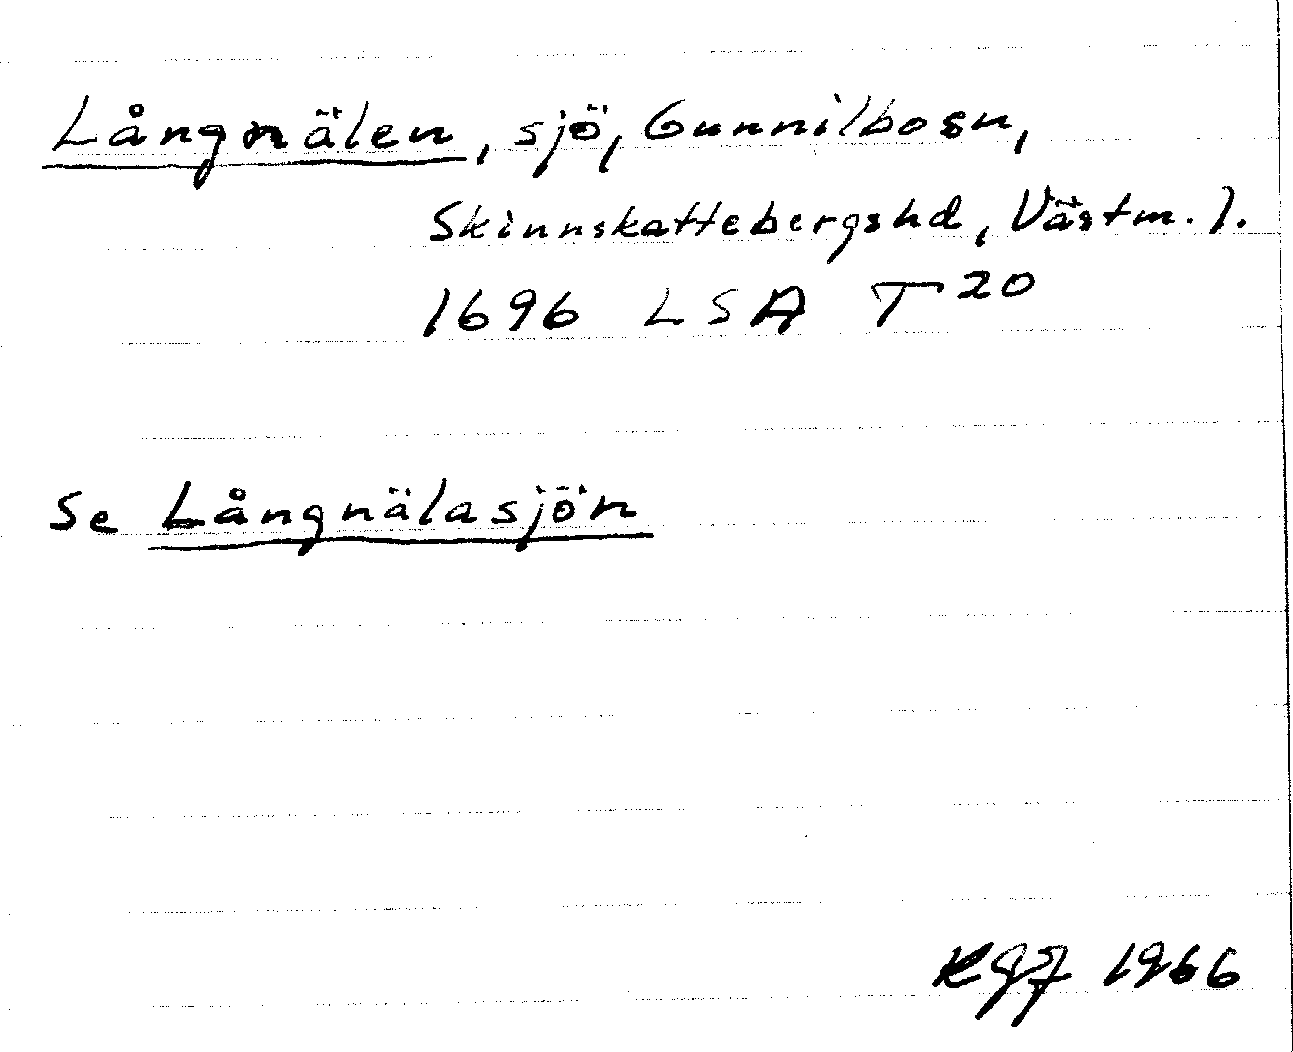 Långnälen, sjö, Gunnilbosn,
Skinnskattebergshd, Västm. l.
1696 LSA T 20
Se Långnälasjön
KGJ 1966